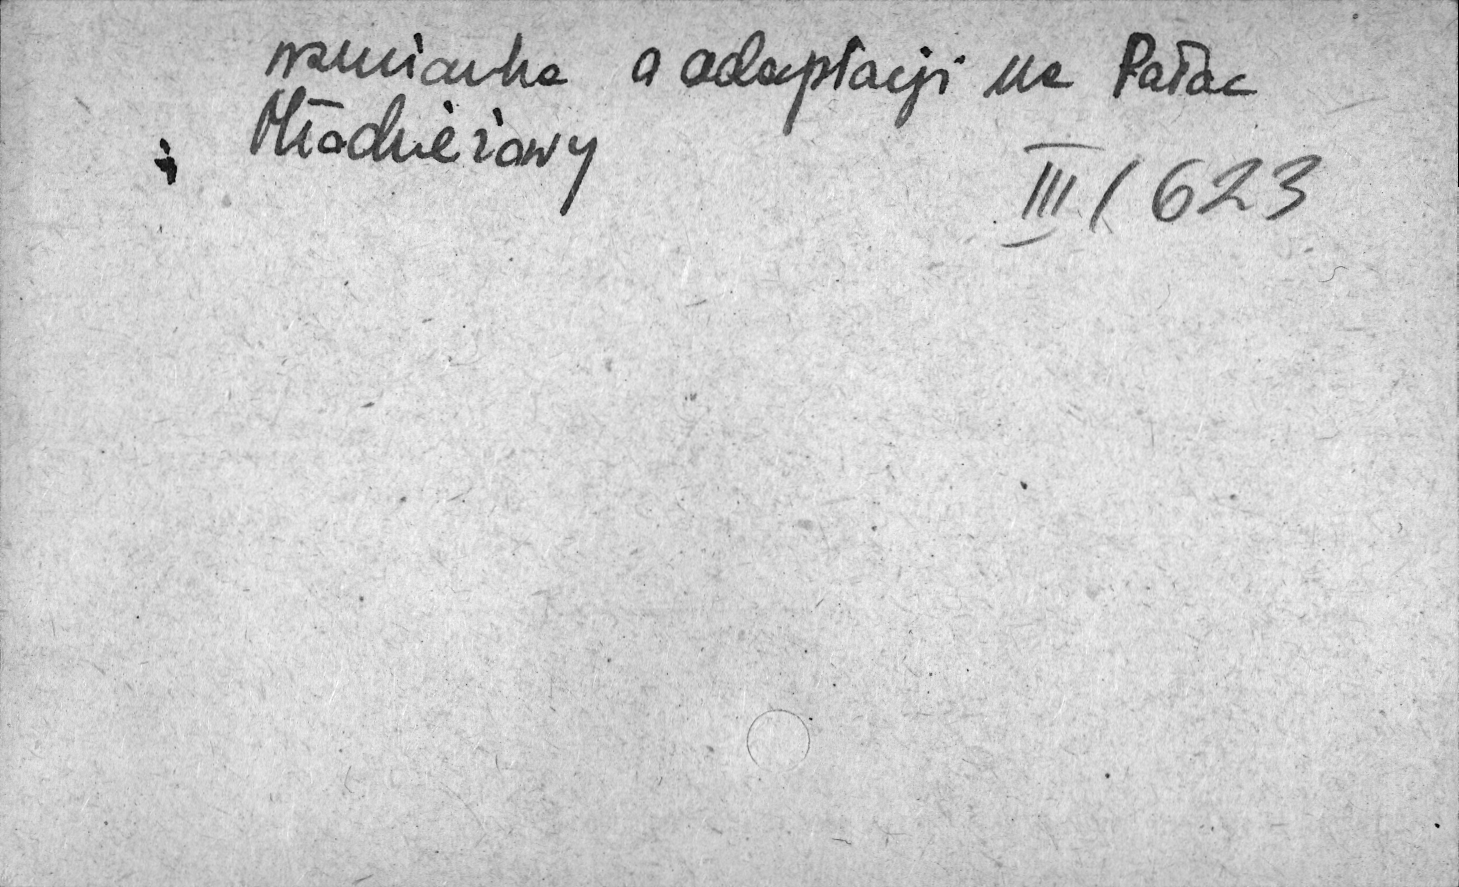 wzmianka o adaptacji na Pałac
Młodzieżowy
III/623